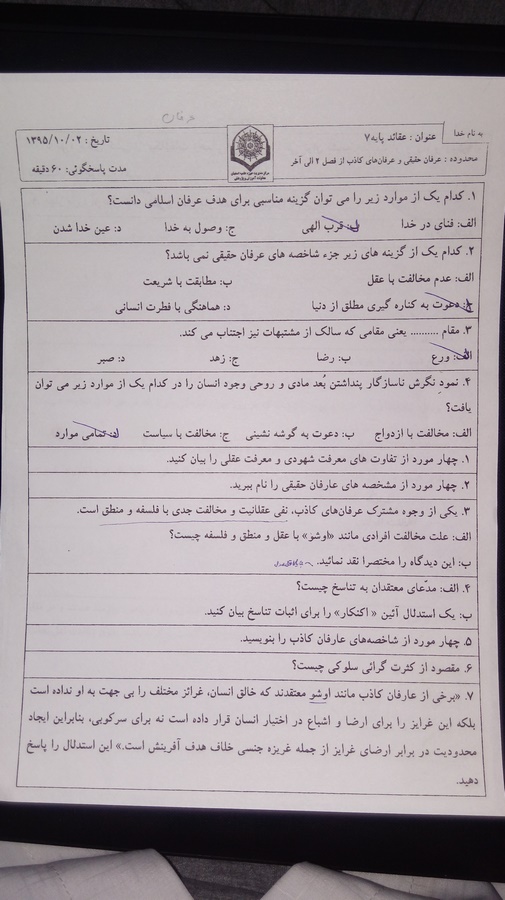 عرفان
به نام خدا
عنوان : عقائد پایه ۷
تاریخ : ۱۳۹۵/۱۰/۰۲
محدوده : عرفان حقیقی و عرفان‌های کاذب از فصل ۲ الی آخر
مدت پاسخگوئی: ۶۰ دقیقه
۱. کدام یک از موارد زیر را می توان گزینه مناسبی برای هدف عرفان اسلامی دانست؟
الف: فنای در خدا ب: قرب الهی ج: وصول به خدا د: عین خدا شدن
۲. کدام یک از گزینه های زیر جزء شاخصه های عرفان حقیقی نمی باشد؟
الف: عدم مخالفت با عقل ب: مطابقت با شریعت
ج: دعوت به کناره گیری مطلق از دنیا د: هماهنگی با فطرت انسانی
۳. مقام .......... یعنی مقامی که سالک از مشتبهات نیز اجتناب می کند.
الف: ورع ب: رضا ج: زهد د: صبر
۴. نمودِ نگرش ناسازگار پنداشتن بُعد مادی و روحی وجود انسان را در کدام یک از موارد زیر می توان
یافت؟
الف: مخالفت با ازدواج ب: دعوت به گوشه نشینی ج: مخالفت با سیاست د: تمامی موارد
۱. چهار مورد از تفاوت های معرفت شهودی و معرفت عقلی را بیان کنید.
۲. چهار مورد از مشخصه های عارفان حقیقی را نام ببرید.
۳. یکی از وجوه مشترک عرفان‌های کاذب، نفی عقلانیت و مخالفت جدی با فلسفه و منطق است.
الف: علت مخالفت افرادی مانند «اوشو» با عقل و منطق و فلسفه چیست؟
ب: این دیدگاه را مختصرا نقد نمائید.
۴. الف: مدّعای معتقدان به تناسخ چیست؟
ب: یک استدلال آئین « اکنکار» را برای اثبات تناسخ بیان کنید.
۵. چهار مورد از شاخصه‌های عارفان کاذب را بنویسید.
۶. مقصود از کثرت گرائی سلوکی چیست؟
۷. «برخی از عارفان کاذب مانند اوشو معتقدند که خالق انسان، غرائز مختلف را بی جهت به او نداده است
بلکه این غرایز را برای ارضا و اشباع در اختیار انسان قرار داده است نه برای سرکوبی، بنابراین ایجاد
محدودیت در برابر ارضای غرایز از جمله غریزه جنسی خلاف هدف آفرینش است.» این استدلال را پاسخ
دهید.